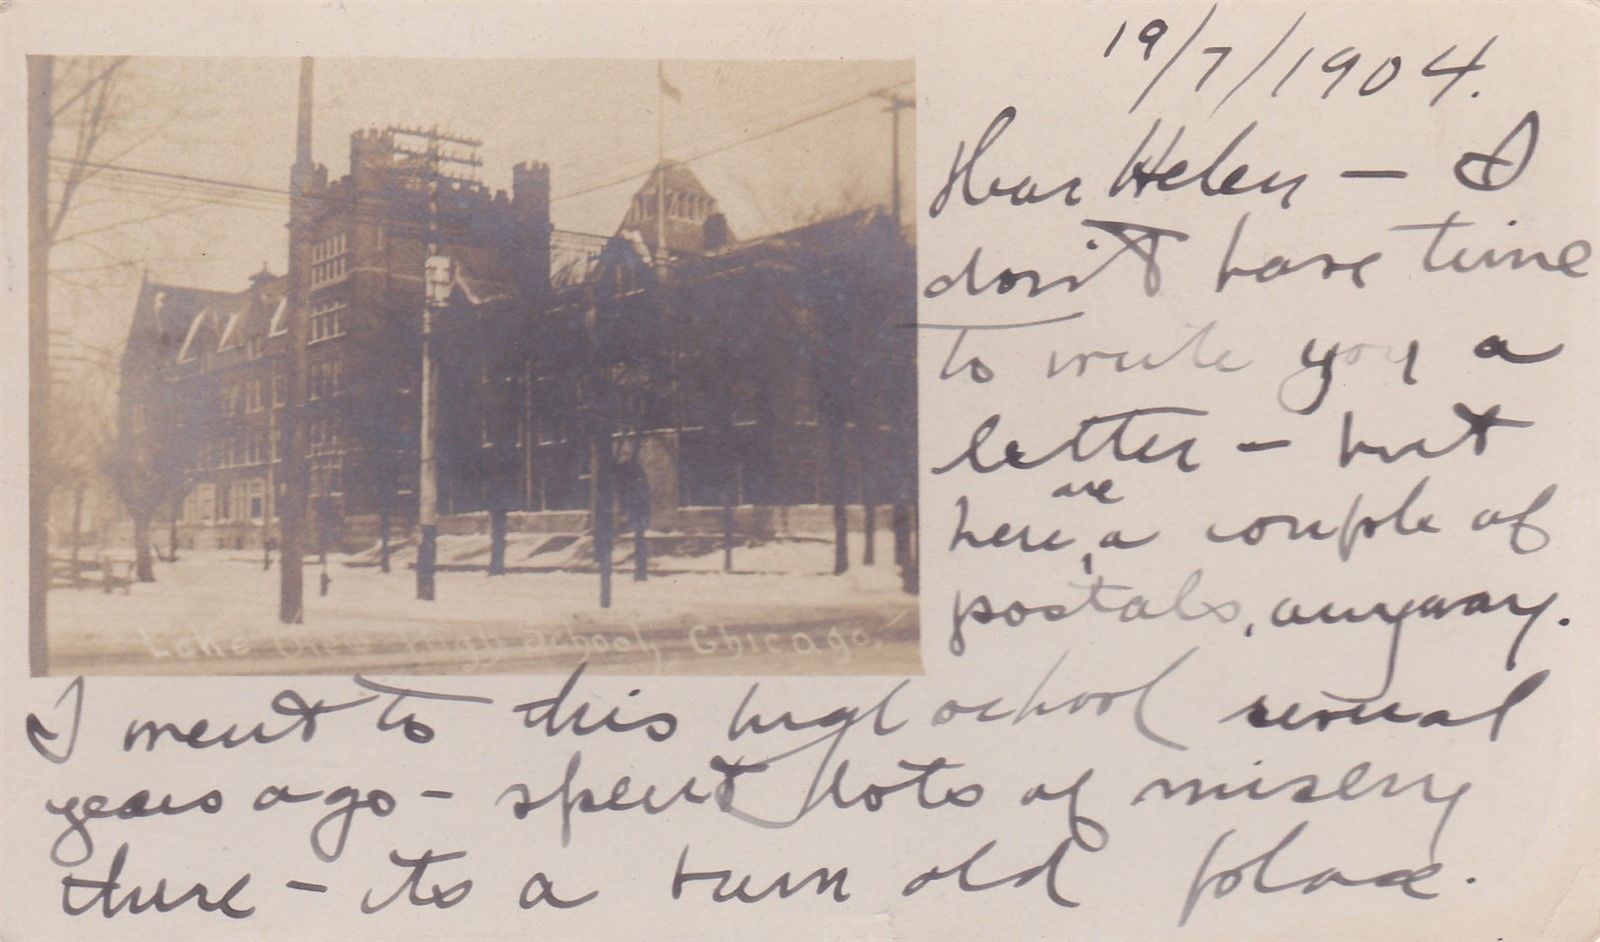 19/7/1904.
Dear Helen — I
don't have time
to write you a
letter — but
here are a couple of
postals, anyway.
Lake View High School, Chicago.
I went to this high school several
years ago — spent lots of misery
there — its a bum old place.